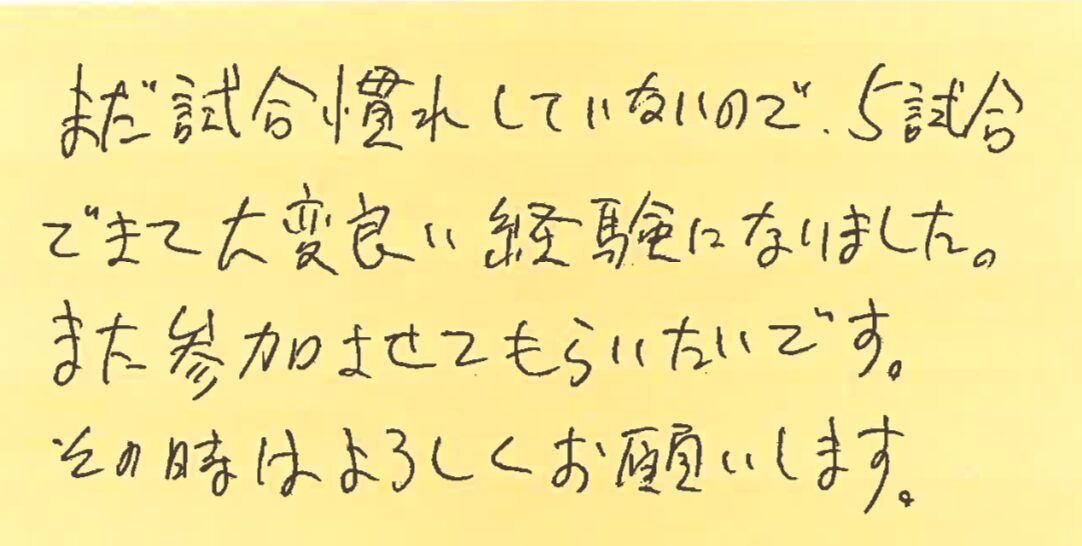 まだ試合慣れしていないので、5試合
できて大変良い経験になりました。
また参加させてもらいたいです。
その時はよろしくお願いします。